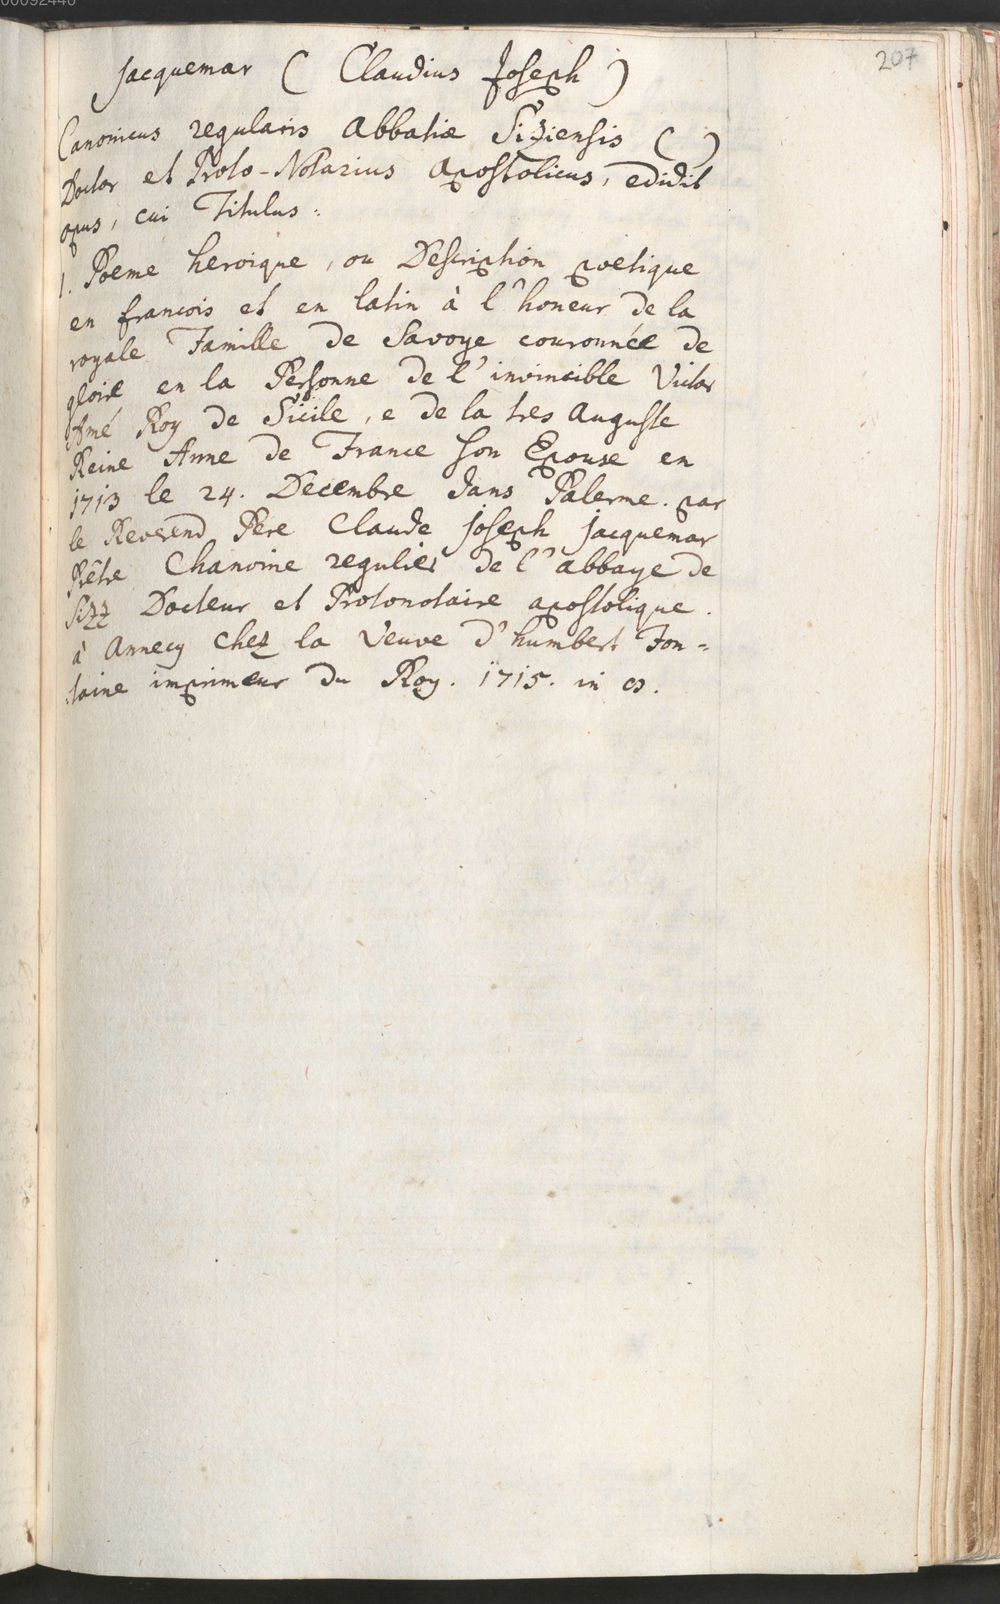 207
Jacquemar ( Claudius Joseph )
Canonicus regularis Abbatiæ Siziensis ( )
Doctor et Proto-Notarius Apostolicus, edidit
opus, cui Titulus:
1. Poeme heroique, ou Description poetique
en francois et en latin à l'honeur de la
royale Famille de Savoye couronnée de
gloire en la Personne de l'invincible Victor
Amé Roy de Sicile, e de la tres Auguste
Reine Anne de France son Epouse en
1713 le 24. Decembre dans Palerme. par
le Reverend Pere Claude Joseph Jacquemar
Prêtre Chanoine regulier de l'abbaye de
Sizz Docteur et Protonotaire apostolique.
à Annecy chez la Veuve d'humbert Fon=
taine imprimeur du Roy. 1715. in